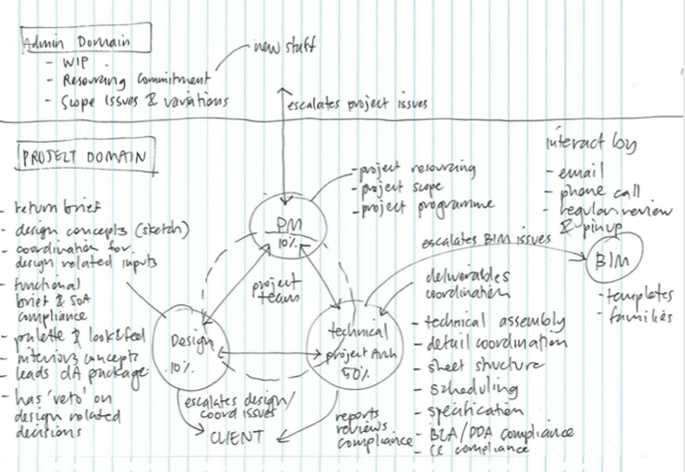 Admin Domain
- WIP
- Resourcing commitment
- Scope Issues & variations
new staff
escalates project issues
PROJECT DOMAIN
- return brief
- design concepts (sketch)
- coordination for
design related inputs
- functional
brief & SoA
compliance
- palette & look & feel
- interiors concepts
- leads DA package
- has 'veto' on
design related
decisions
PM
10%
- project resourcing
- project scope
- project programme
project
team
Design
10%
technical
project Arch
50%
escalates design/
coord issues
CLIENT
reports
reviews
compliance
escalates BIM issues
deliverables
coordination
- technical assembly
- detail coordination
- sheet structure
- scheduling
- specification
- BCA/DDA compliance
- compliance
interact by
- email
- phone call
- regular review
& pinup
BIM
- templates
- families